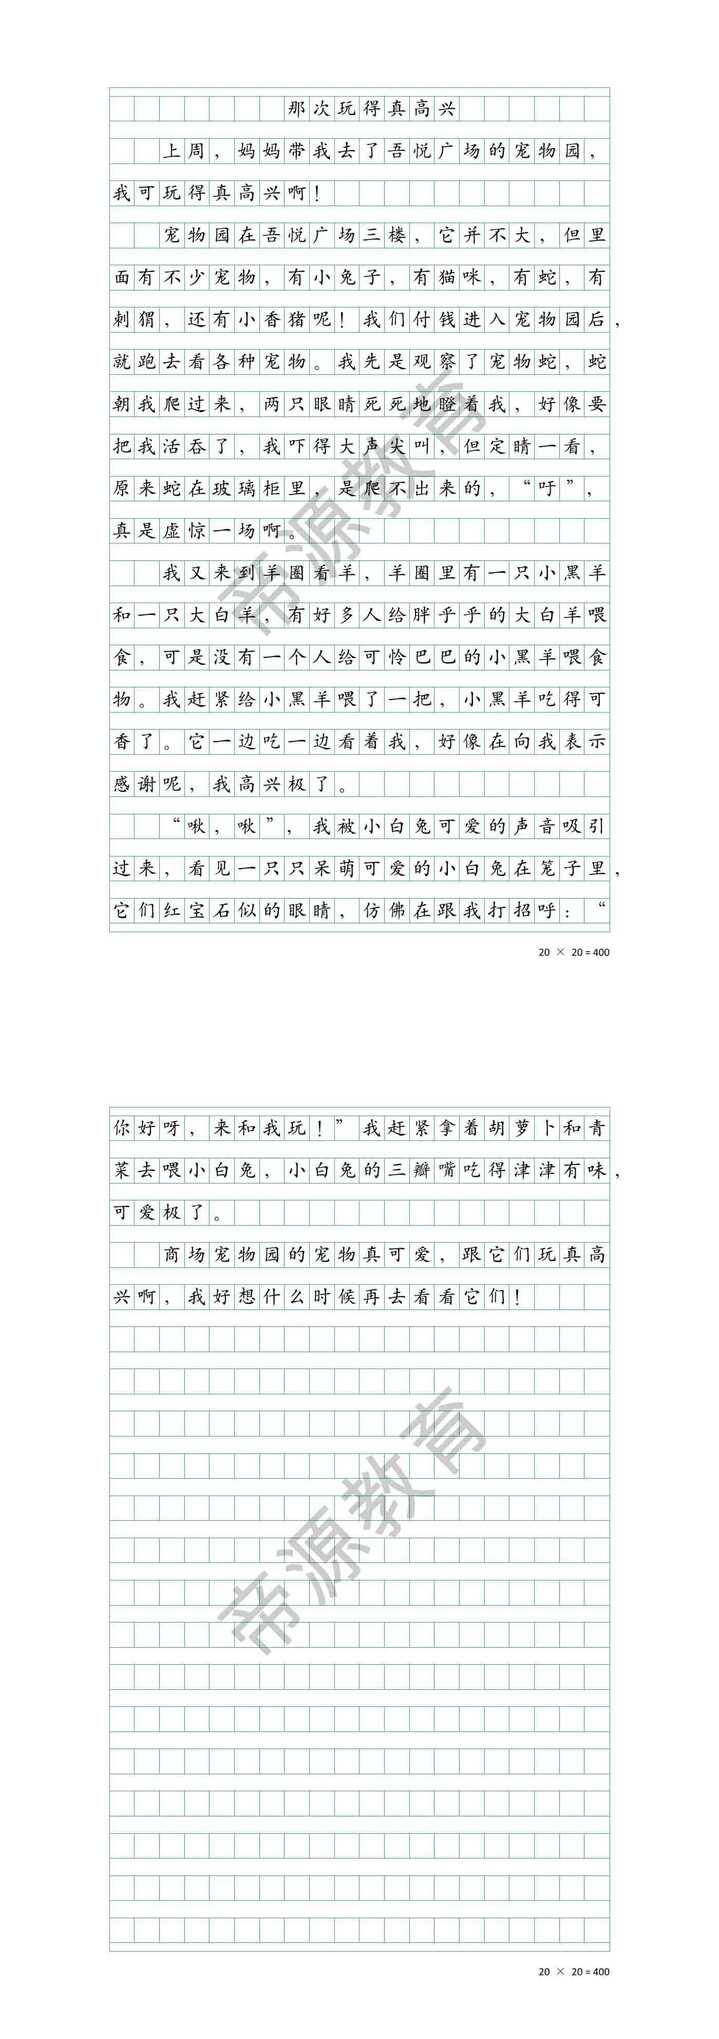 那次玩得真高兴
上周，妈妈带我去了吾悦广场的宠物园，
我可玩得真高兴啊！
宠物园在吾悦广场三楼，它并不大，但里
面有不少宠物，有小兔子，有猫咪，有蛇，有
刺猬，还有小香猪呢！我们付钱进入宠物园后，
就跑去看各种宠物。我先是观察了宠物蛇，蛇
朝我爬过来，两只眼睛死死地瞪着我，好像要
把我活吞了，我吓得大声尖叫，但定睛一看，
原来蛇在玻璃柜里，是爬不出来的，“吁”，
真是虚惊一场啊。
我又来到羊圈看羊，羊圈里有一只小黑羊
和一只大白羊，有好多人给胖乎乎的大白羊喂
食，可是没有一个人给可怜巴巴的小黑羊喂食
物。我赶紧给小黑羊喂了一把，小黑羊吃得可
香了。它一边吃一边看着我，好像在向我表示
感谢呢，我高兴极了。
“啾，啾”，我被小白兔可爱的声音吸引
过来，看见一只只呆萌可爱的小白兔在笼子里，
它们红宝石似的眼睛，仿佛在跟我打招呼：“
20 × 20 = 400
你好呀，来和我玩！”我赶紧拿着胡萝卜和青
菜去喂小白兔，小白兔的三瓣嘴吃得津津有味，
可爱极了。
商场宠物园的宠物真可爱，跟它们玩真高
兴啊，我好想什么时候再去看看它们！
20 × 20 = 400
帝源教育
帝源教育